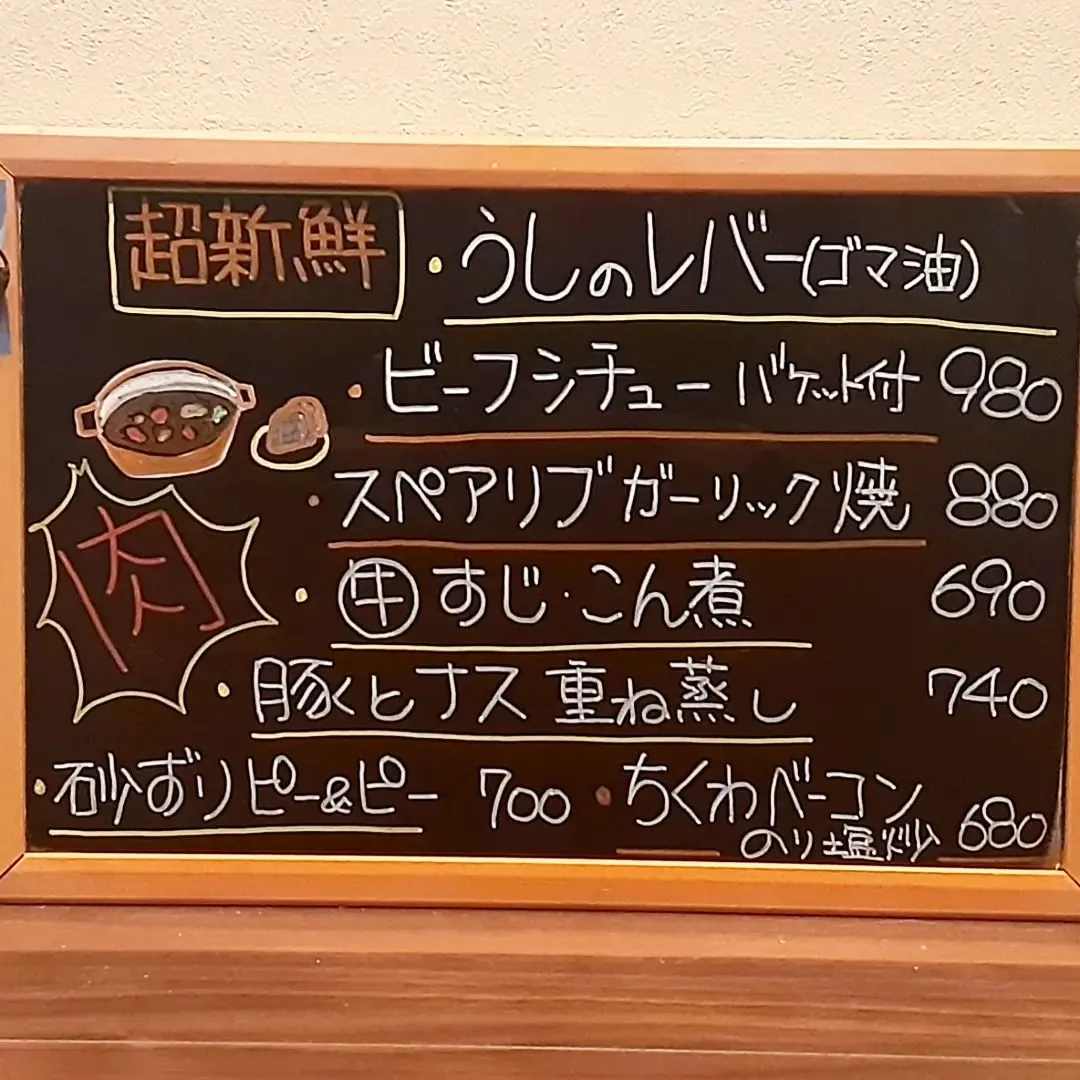 超新鮮 ・うしのレバー(ゴマ油)
・ビーフシチュー バケット付 980
肉
・スペアリブガーリック焼 880
・牛すじ・こん煮 690
・豚くとナス 重ね蒸し 740
・砂ずりピー&ピー 700 ・ちくわベーコン
のり塩炒 680